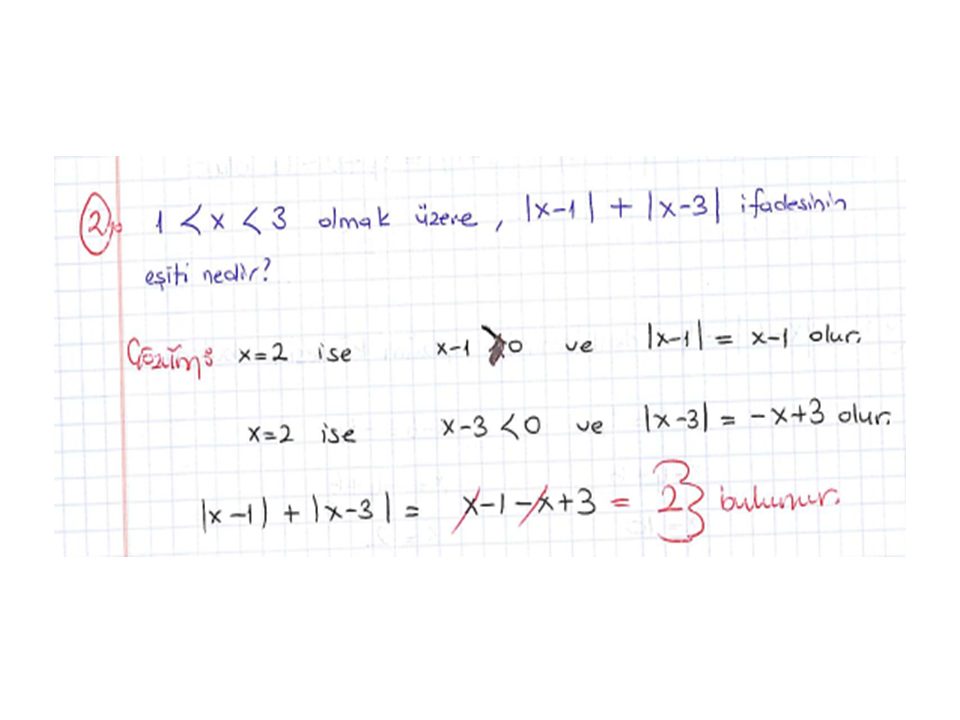 2) 1 < x < 3 olmak üzere, |x-1| + |x-3| ifadesinin
eşiti nedir?
Çözüm: x=2 ise x-1 > 0 ve |x-1| = x-1 olur.
x=2 ise x-3 < 0 ve |x-3| = -x+3 olur.
|x-1| + |x-3| = x-1-x+3 = 2 bulunur.